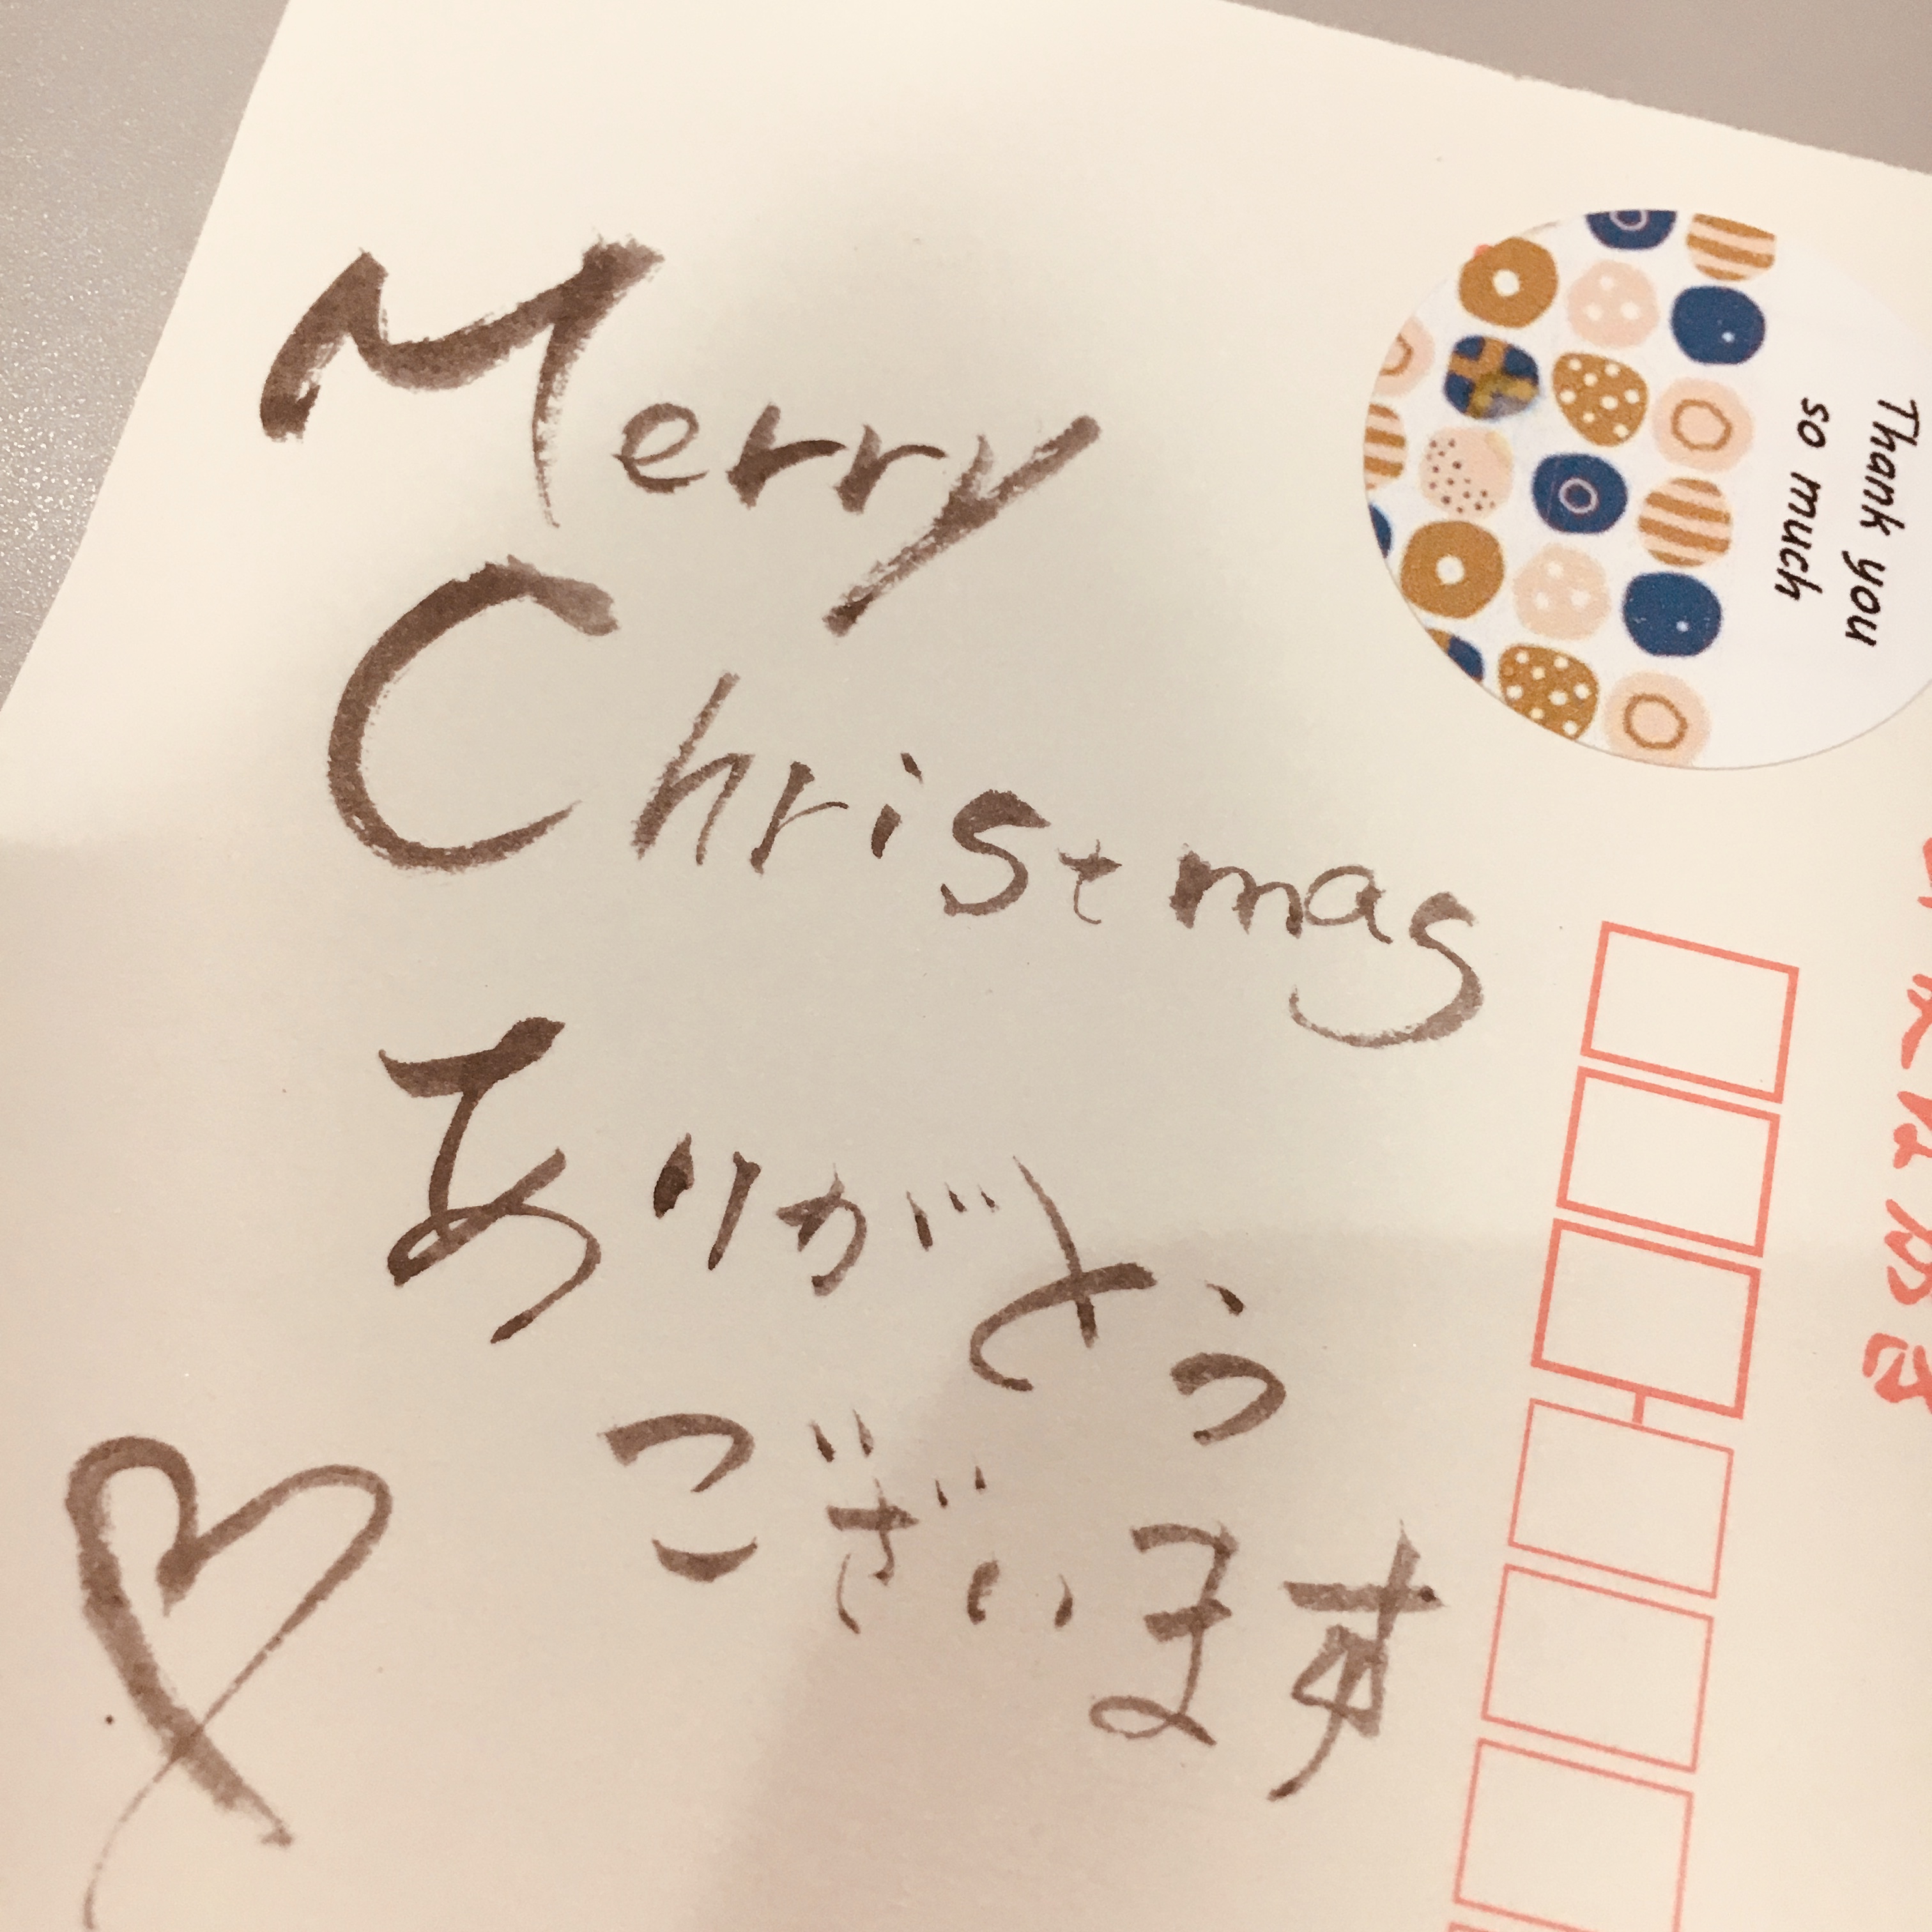 Merry
Christmas
ありがとう
ございます
Thank you
so much